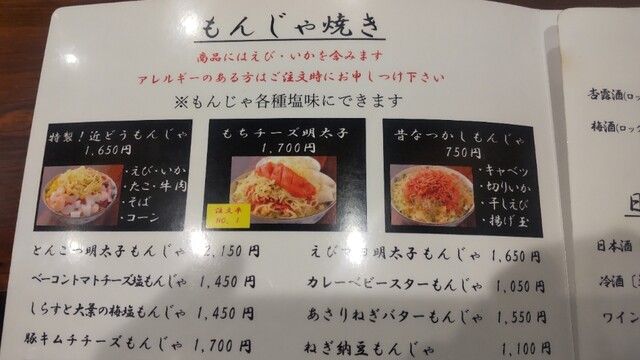 もんじゃ焼き
商品にはえび・いかを含みます
アレルギーのある方はご注文時にお申しつけ下さい
※もんじゃ各種塩味にできます
特製！近どうもんじゃ
1,650円
・えび・いか
・たこ・牛肉
・そば
・コーン
もちチーズ明太子
1,700円
注文率
NO.1
昔なつかしもんじゃ
750円
・キャベツ
・切りいか
・干しえび
・揚げ玉
とんこつ明太子もんじゃ 2,150円
ベーコントマトチーズ塩もんじゃ 1,450円
しらすと大葉の梅塩もんじゃ 1,450円
豚キムチチーズもんじゃ 1,700円
明太子もんじゃ 1,650円
カレーベビースターもんじゃ 1,050円
あさりねぎバターもんじゃ 1,550円
ねぎ納豆もんじゃ 1,100円
杏露酒(ロッ
梅酒(ロッ
日本酒
冷酒
ワイン